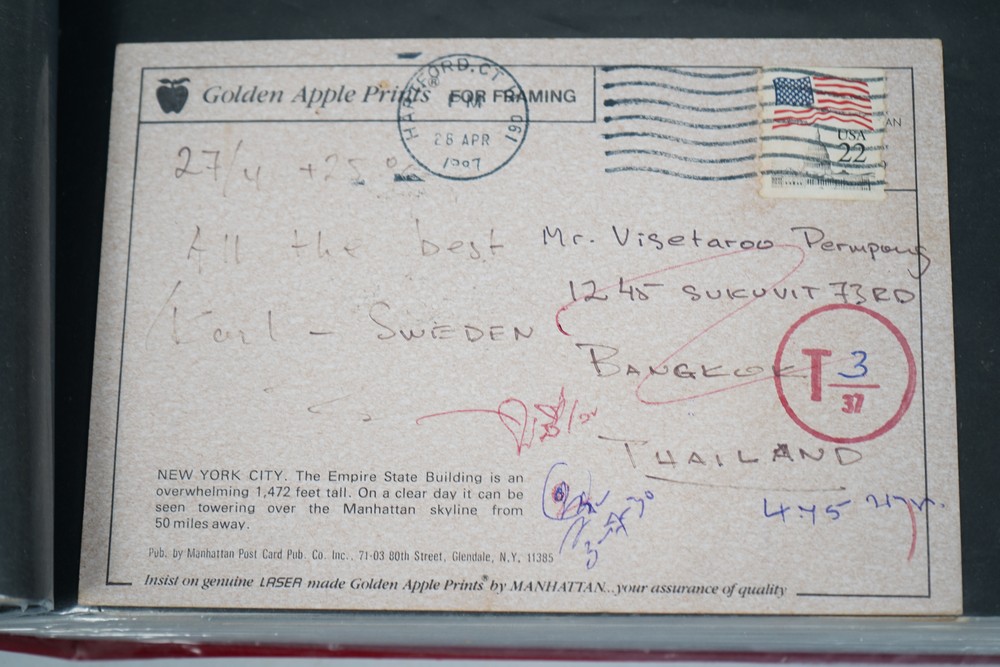 Golden Apple Prints® FOR FRAMING
HARTFORD, CT 061
PM
26 APR
USA
22
AN
27/4 +25°
All the best
Karl - SWEDEN
Mr. Visetaroo Permpong
1245 SUKUVIT 73RD
BANGKOK
THAILAND
T 3
37
4.75
NEW YORK CITY. The Empire State Building is an
overwhelming 1,472 feet tall. On a clear day it can be
seen towering over the Manhattan skyline from
50 miles away.
Pub. by Manhattan Post Card Pub. Co. Inc., 71-03 80th Street, Glendale, N.Y. 11385
Insist on genuine LASER made Golden Apple Prints® by MANHATTAN...your assurance of quality